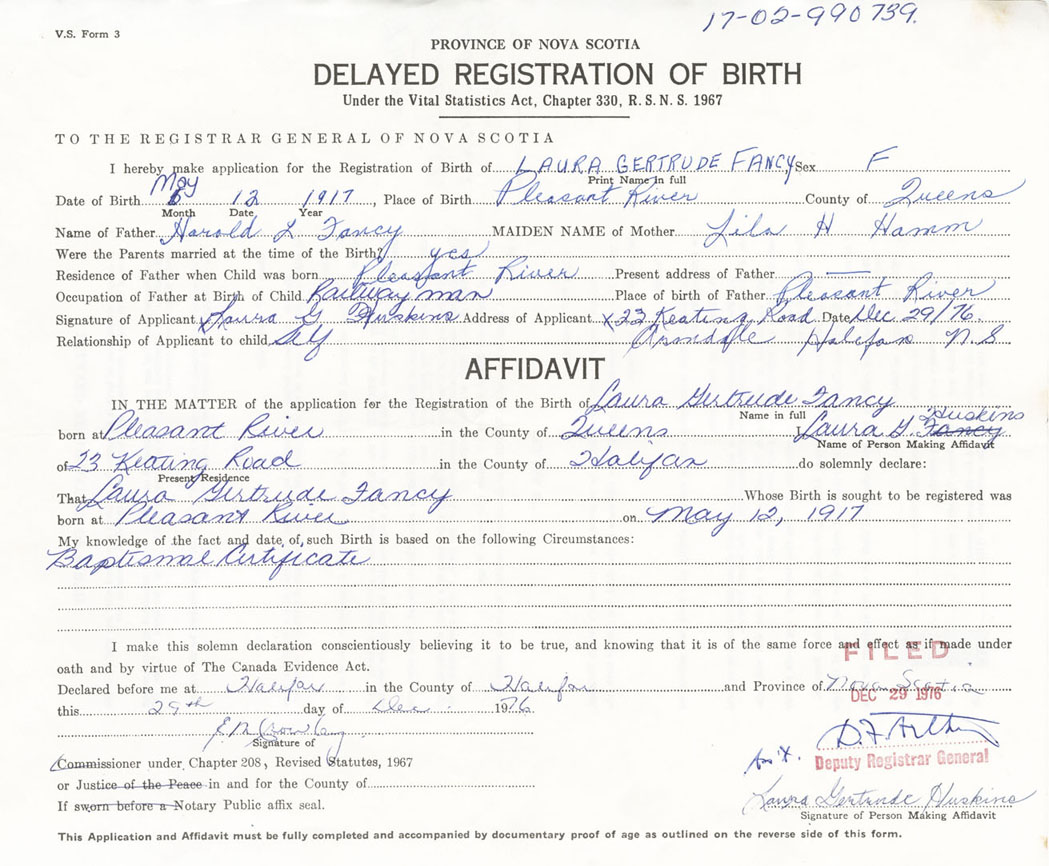 17-02-990739.
V.S. Form 3
PROVINCE OF NOVA SCOTIA
DELAYED REGISTRATION OF BIRTH
Under the Vital Statistics Act, Chapter 330, R.S.N.S. 1967
TO THE REGISTRAR GENERAL OF NOVA SCOTIA
I hereby make application for the Registration of Birth of LAURA GERTRUDE FANCY, Sex F
Print Name in full
Date of Birth May 12 1917, Place of Birth Pleasant River County of Queens
Month Date Year
Name of Father Harold L Fancy MAIDEN NAME of Mother Lila H Hamm
Were the Parents married at the time of the Birth? yes
Residence of Father when Child was born Pleasant River Present address of Father —
Occupation of Father at Birth of Child Railway man Place of birth of Father Pleasant River
Signature of Applicant Laura G Huskins Address of Applicant X 23 Keating Road Date Dec 29/76.
Relationship of Applicant to child Self Armdale Halifax N.S.
AFFIDAVIT
IN THE MATTER of the application for the Registration of the Birth of Laura Gertrude Fancy
Name in full
Huskins
born at Pleasant River in the County of Queens I, Laura G. Fancy
Name of Person Making Affidavit
of 23 Keating Road in the County of Halifax do solemnly declare:
Present Residence
That Laura Gertrude Fancy Whose Birth is sought to be registered was
born at Pleasant River on May 12, 1917
My knowledge of the fact and date, of, such Birth is based on the following Circumstances:
Baptismal Certificate
I make this solemn declaration conscientiously believing it to be true, and knowing that it is of the same force and effect as if made under
oath and by virtue of The Canada Evidence Act.
FILED
Declared before me at Halifax in the County of Halifax and Province of Nova Scotia
DEC 29 1976
this 29th day of Dec. 1976
Signature of
Commissioner under Chapter 208, Revised Statutes, 1967
Deputy Registrar General
or Justice of the Peace in and for the County of
Laura Gertrude Huskins
If sworn before a Notary Public affix seal.
Signature of Person Making Affidavit
This Application and Affidavit must be fully completed and accompanied by documentary proof of age as outlined on the reverse side of this form.